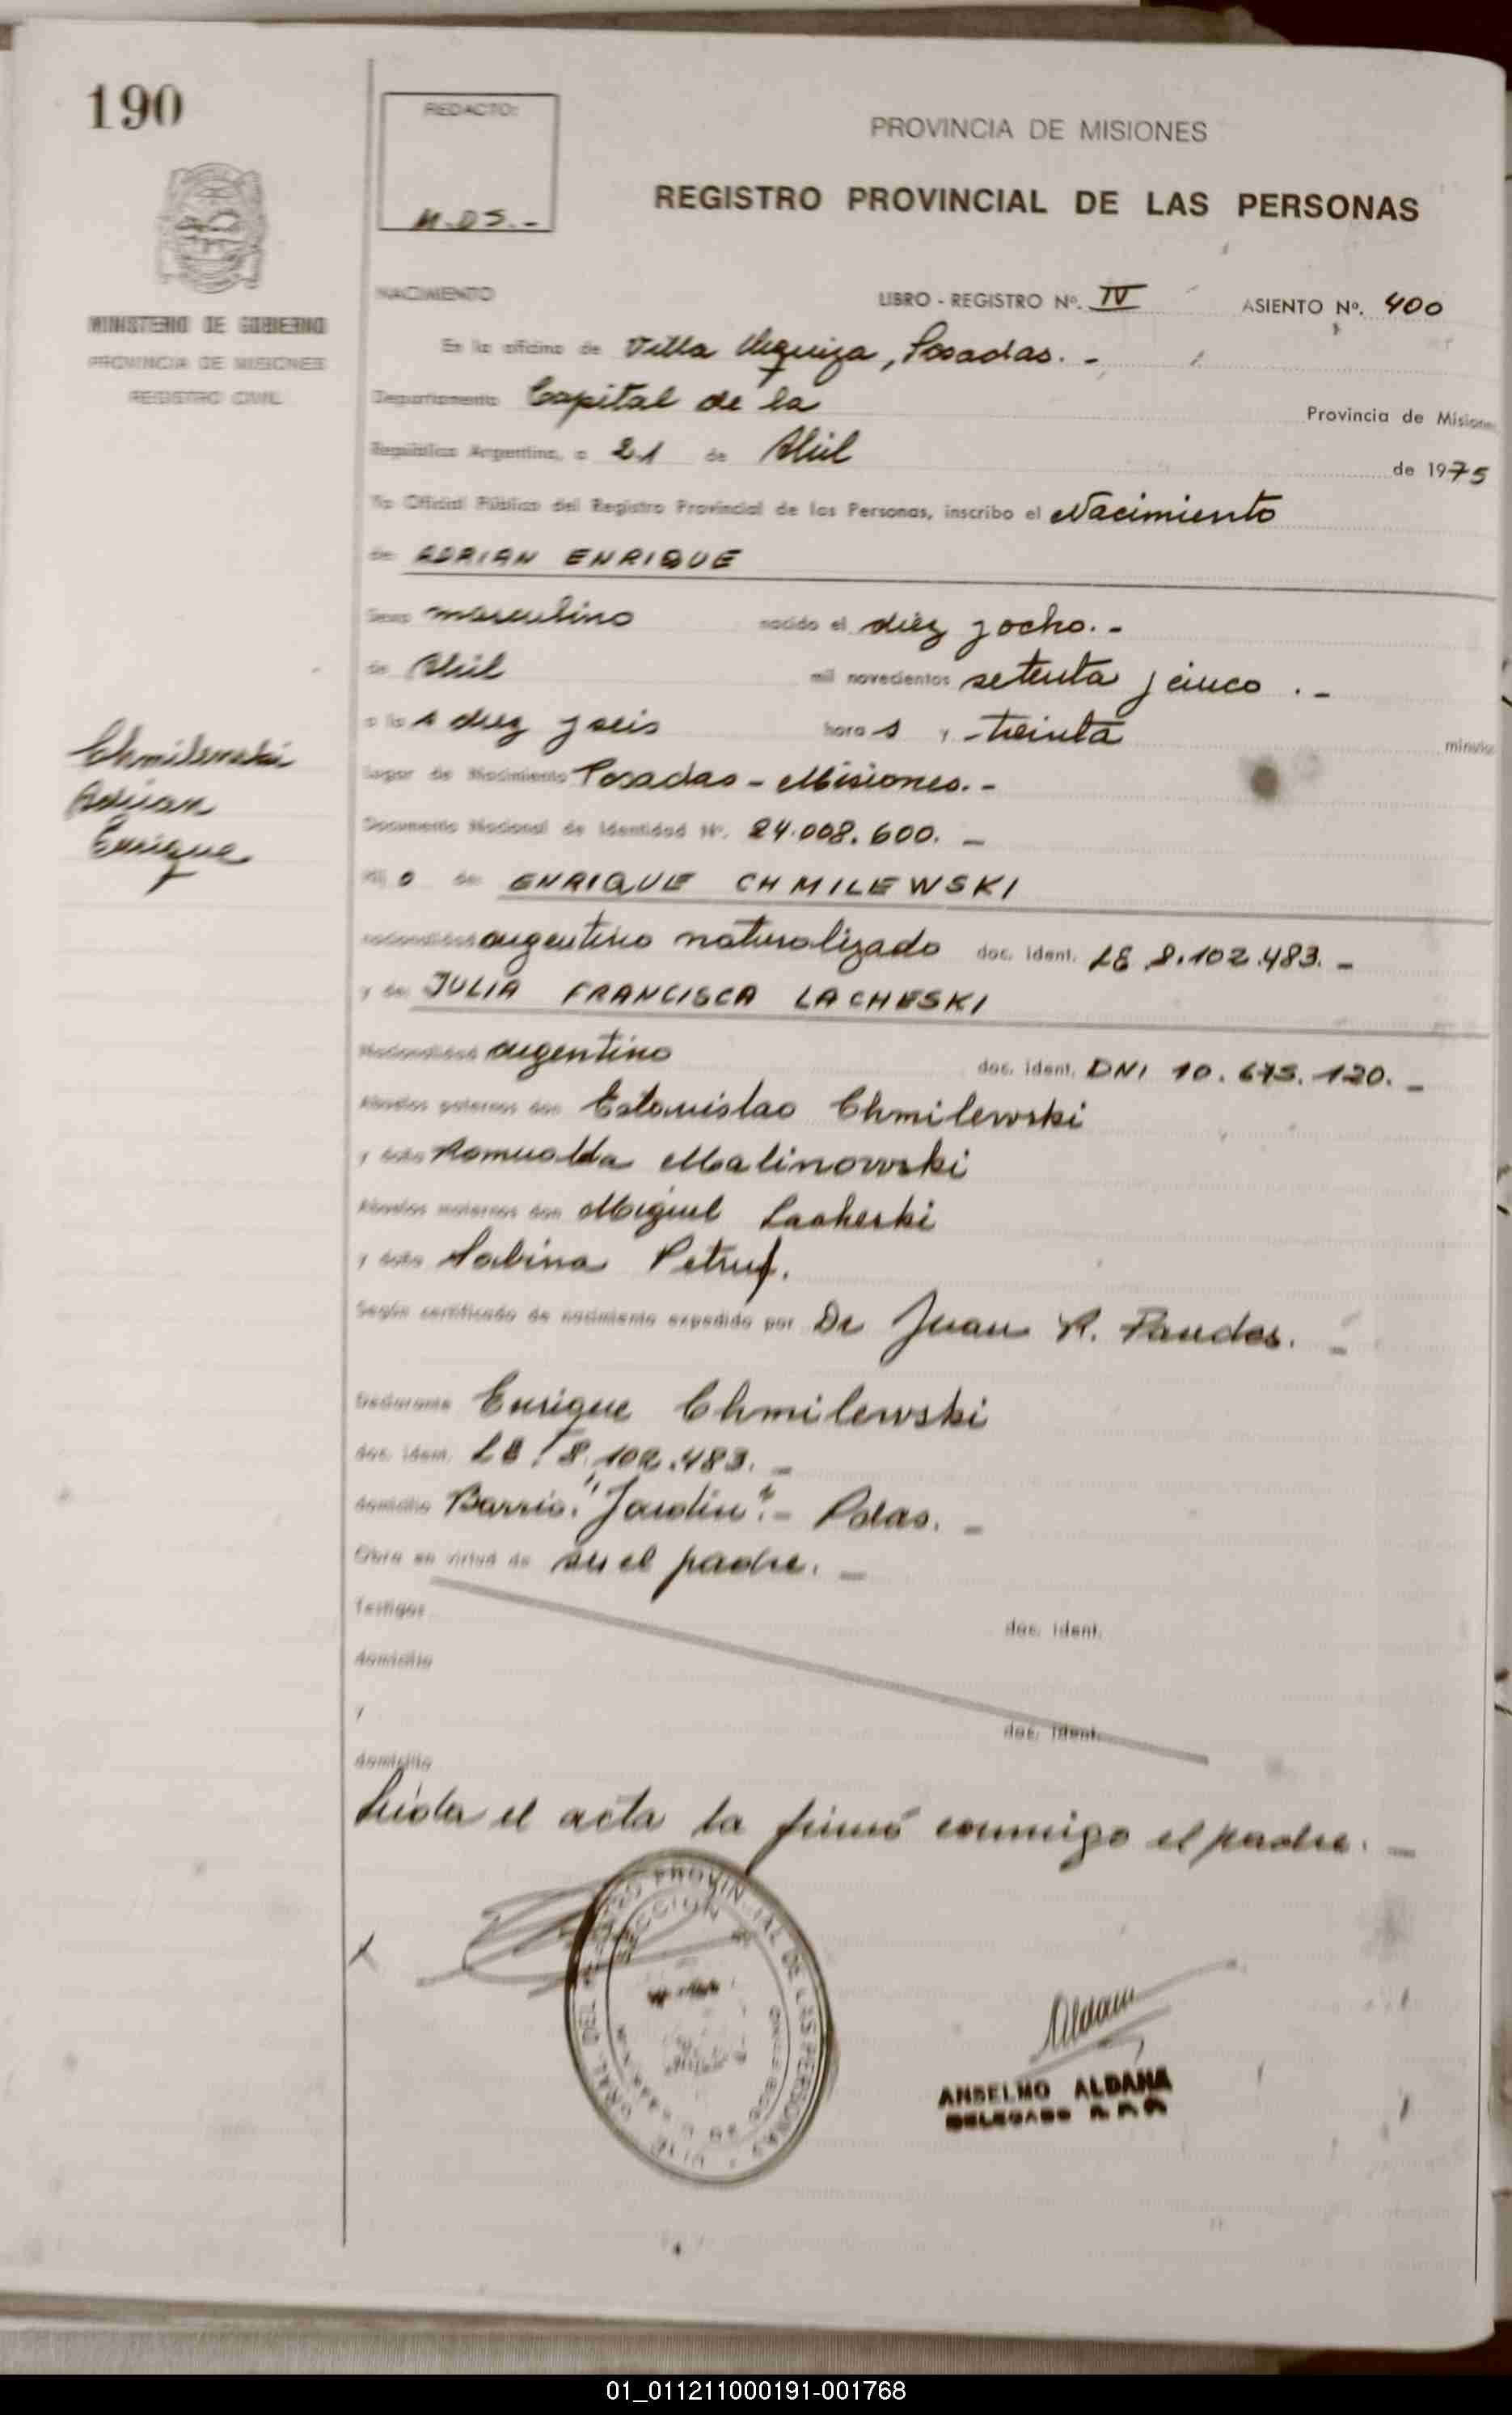 190
REDACTO:
M.D.S.-
PROVINCIA DE MISIONES
REGISTRO PROVINCIAL DE LAS PERSONAS
MINISTERIO DE GOBIERNO
PROVINCIA DE MISIONES
REGISTRO CIVIL
NACIMIENTO
LIBRO - REGISTRO Nº. IV ASIENTO Nº. 400
En la oficina de Villa Urquiza, Posadas. -
Departamento Capital de la Provincia de Misiones
República Argentina, a 21 de Abril de 1975
Yo Oficial Público del Registro Provincial de las Personas, inscribo el Nacimiento
de ADRIAN ENRIQUE
Sexo masculino nacido el diez y ocho. -
de Abril mil novecientos setenta y cinco . -
a las diez y seis hora s y -treinta minutos
Lugar de Nacimiento Posadas - Misiones. -
Chmilewski
Adrian
Enrique
Documento Nacional de Identidad Nº. 24.008.600. -
Hijo de ENRIQUE CHMILEWSKI
nacionalidad argentino naturalizado doc. ident. LE 8.102.483. -
y de JULIA FRANCISCA LACHESKI
Nacionalidad argentino doc. ident. DNI 10.675.120. -
Abuelos paternos don Estanislao Chmilewski
y doña Romualda Malinowski
Abuelos maternos don Miguel Lacheski
y doña Sabina
Según certificado de nacimiento expedido por Dr Juan R. -
Declarante Enrique Chmilewski
doc. ident. LE. 8.102.483. -
domicilio Barrio. "Jardín". - Pdas. -
Obra en virtud de ser el padre. -
Testigos doc. ident.
domicilio
y doc. ident.
domicilio
Leída el acta la firmó conmigo el padre. -
x
PROVINCIAL DE LAS PERSONAS
Aldana
ANSELMO ALDANA
DELEGADO R. P. P.
01_011211000191-001768